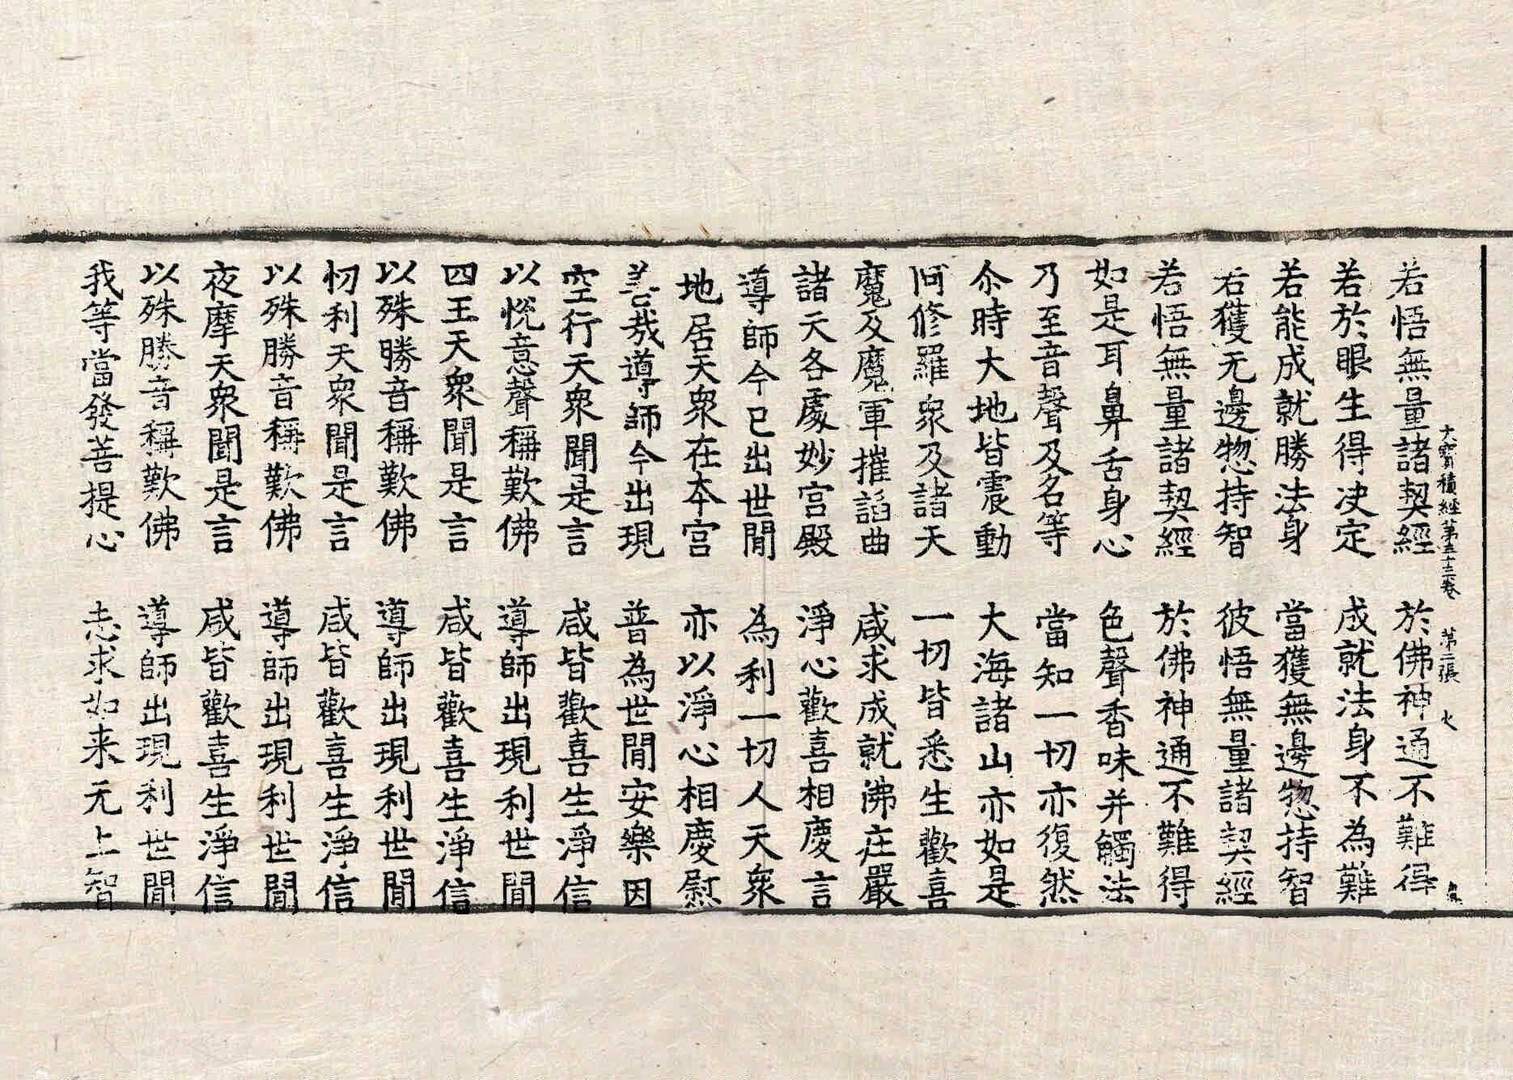 大寶積經第五十三卷　第二張　火
若悟無量諸契經　於佛神通不難得
若於眼生得决定　成就法身不為難
若能成就勝法身　當獲無邊惣持智
若獲无邊惣持智　彼悟無量諸契經
若悟無量諸契經　於佛神通不難得
如是耳鼻舌身心　色聲香味并觸法
乃至音聲及名等　當知一切亦復然
尒時大地皆震動　大海諸山亦如是
阿修羅衆及諸天　一切皆悉生歡喜
魔及魔軍摧諂曲　咸求成就佛庄嚴
諸天各處妙宫殿　淨心歡喜相慶言
導師今已出世間　為利一切人天衆
地居天衆在本宫　亦以淨心相慶慰
善哉導師今出現　普為世間安樂因
空行天衆聞是言　咸皆歡喜生淨信
以悅意聲稱歎佛　導師出現利世間
四王天衆聞是言　咸皆歡喜生淨信
以殊勝音稱歎佛　導師出現利世間
忉利天衆聞是言　咸皆歡喜生淨信
以殊勝音稱歎佛　導師出現利世間
夜摩天衆聞是言　咸皆歡喜生淨信
以殊勝音稱歎佛　導師出現利世間
我等當發菩提心　志求如来无上智